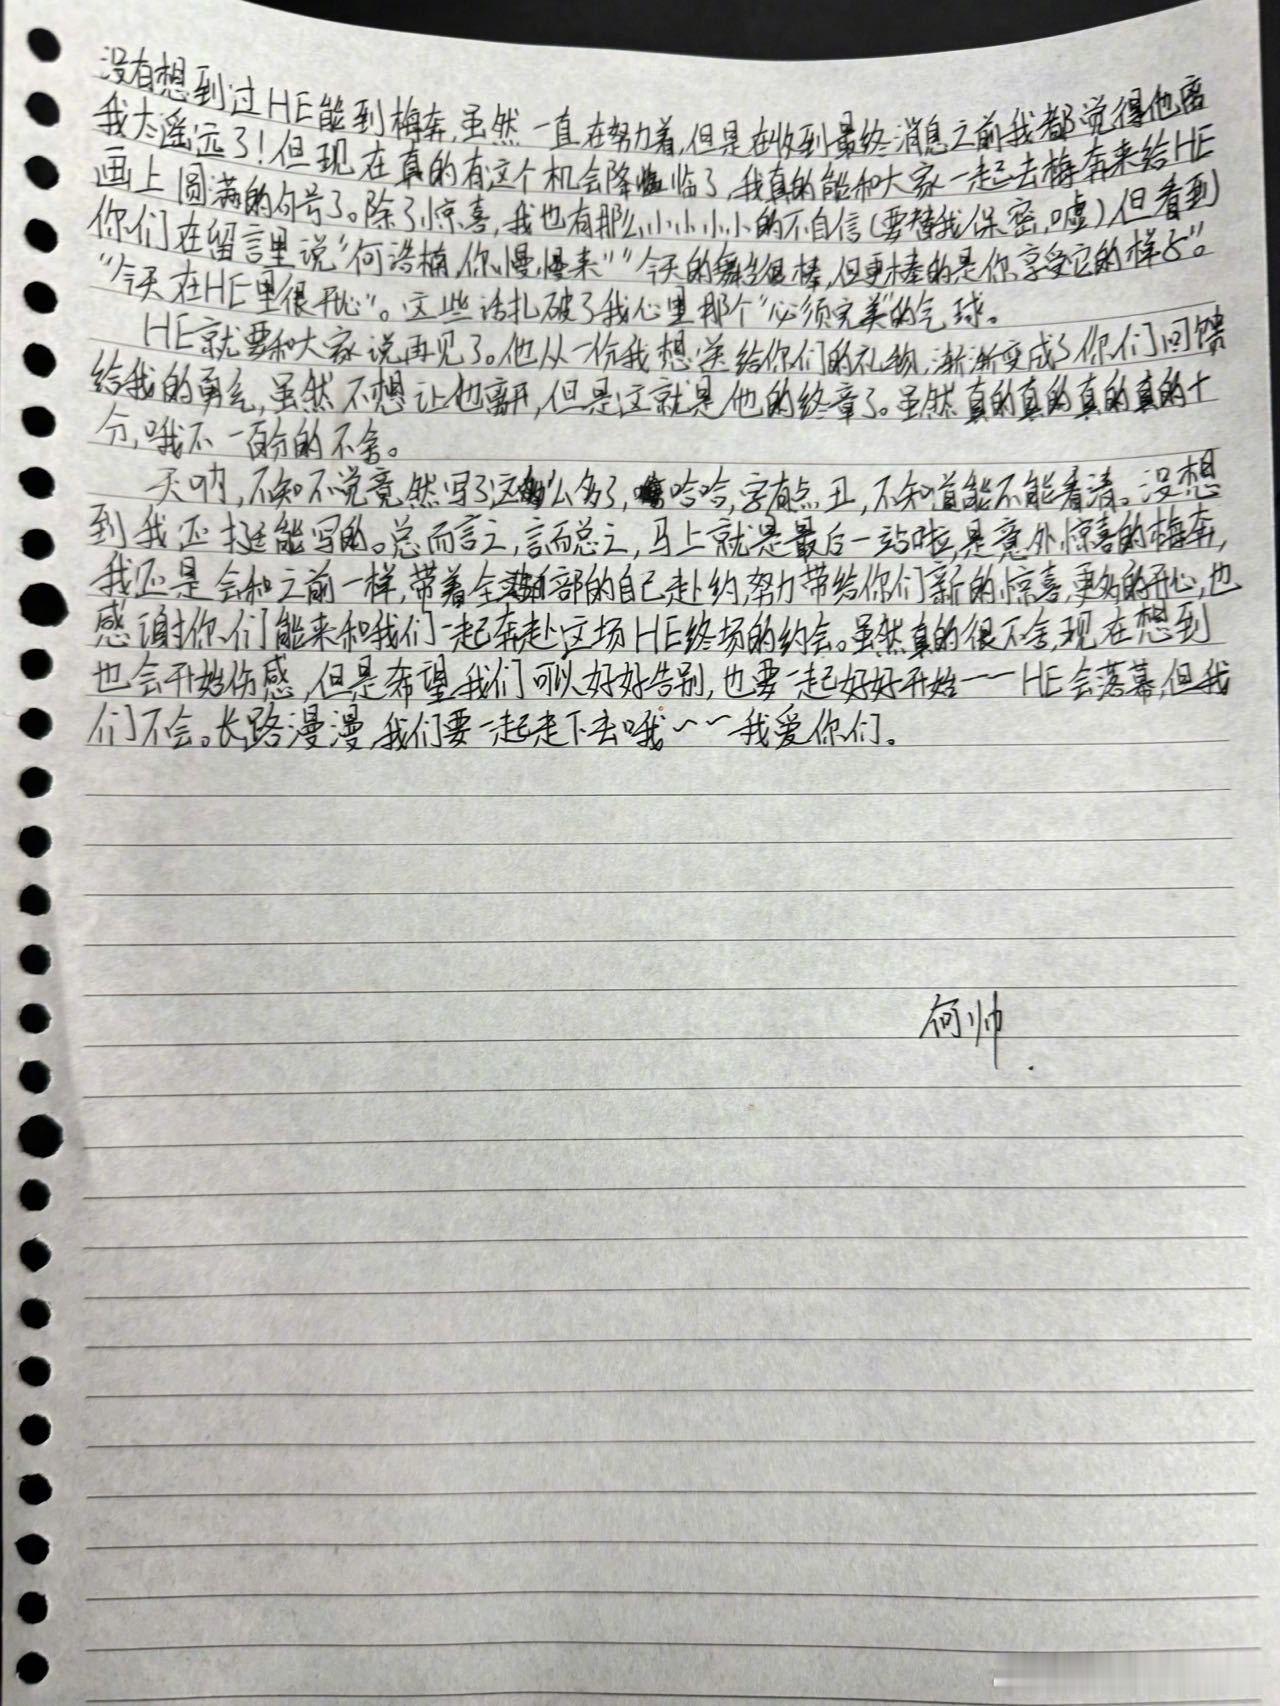 没有想到过HE能到梅奔,虽然一直在努力着,但是在收到最终消息之前我都觉得他离
我太遥远了!但现在真的有这个机会降临了,我真的能和大家一起去梅奔来给HE
画上圆满的句号了。除了惊喜,我也有那么小小小小的不自信(要替我保密,嘘),但看到
你们在留言里说“何浩楠,你慢慢来”“今天的舞台很棒,但更棒的是你享受它的样子”。
“今天在HE里很开心”。这些话扎破了我心里那个“必须完美”的气球。
HE就要和大家说再见了。他从一份我想送给你们的礼物,渐渐变成了你们回馈
给我的勇气,虽然不想让他离开,但是这就是他的终章了。虽然真的真的真的真的十
分,哦不一百分的不舍。
天呐,不知不觉竟然写了这么多了,哈哈,字有点丑,不知道能不能看清。没想
到我还挺能写的。总而言之,言而总之,马上就是最后一站啦,是意外惊喜的梅奔,
我还是会和之前一样,带着全部的自己赴约,努力带给你们新的惊喜,更多的开心,也
感谢你们能来和我们一起奔赴这场HE终场的约会。虽然真的很不舍,现在想到
也会开始伤感,但是希望我们可以好好告别,也要一起好好开始~~HE会落幕,但我
们不会。长路漫漫,我们要一起走下去哦~~我爱你们。
何帅.